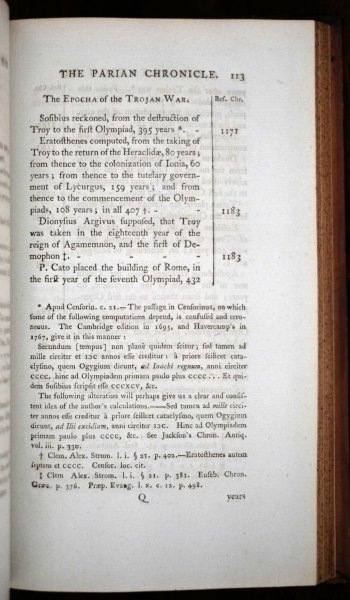 THE PARIAN CHRONICLE. 113
The EPOCHA of the TROJAN WAR. Bef. Chr.
Sofibius reckoned, from the deſtruction of
Troy to the firſt Olympiad, 395 years *. - 1171
Eratoſthenes computed, from the taking of
Troy to the return of the Heraclidæ, 80 years;
from thence to the colonization of Ionia, 60
years; from thence to the tutelary govern-
ment of Lycurgus, 159 years; and from
thence to the commencement of the Olym-
piads, 108 years; in all 407 †. - - 1183
Dionyſius Argivus ſuppoſed, that Troy
was taken in the eighteenth year of the
reign of Agamemnon, and the firſt of De-
mophon ‡. - - - - - 1183
P. Cato placed the building of Rome, in
the firſt year of the ſeventh Olympiad, 432
* Apud Cenſorin. c. 21.— The paſſage in Cenſorinus, on which
ſome of the following computations depend, is confuſed and erro-
neous. The Cambridge edition in 1695, and Havercamp's in
1767, give it in this manner:
Secundum [tempus] non planè quidem ſcitur; ſed tamen ad
mille circiter et IƆC annos eſſe creditur: à priore ſcilicet cata-
clyſmo, quem Ogygium dicunt, ad Inachi regnum, anni circiter
CCCC. hinc ad Olympiadem primam paulo plus CCCC. Et qui-
dem Soſibius ſcripſit eſſe CCCXCV, &c.
The following alteration will perhaps give us a clear and conſiſ-
tent idea of the author's calculations.——Sed tamen ad mille circi-
ter annos eſſe creditur à priore ſcilicet cataclyſmo, quem Ogygium
dicunt, ad Ilii excidium, anni circiter IƆC. Hinc ad Olympiadem
primam paulo plus CCCC, &c. See Jackſon's Chron. Antiq.
vol. iii. p. 330.
† Clem. Alex. Strom. l. i. § 21. p. 402.—Eratoſthenes autem
ſeptem et CCCC. Cenſor. loc. cit.
‡ Clem Alex. Strom. l. i. § 21. p. 381. Euſeb. Chron.
Græc. p. 376. Præp. Evang. l. x. c. 12. p. 498.
Q years